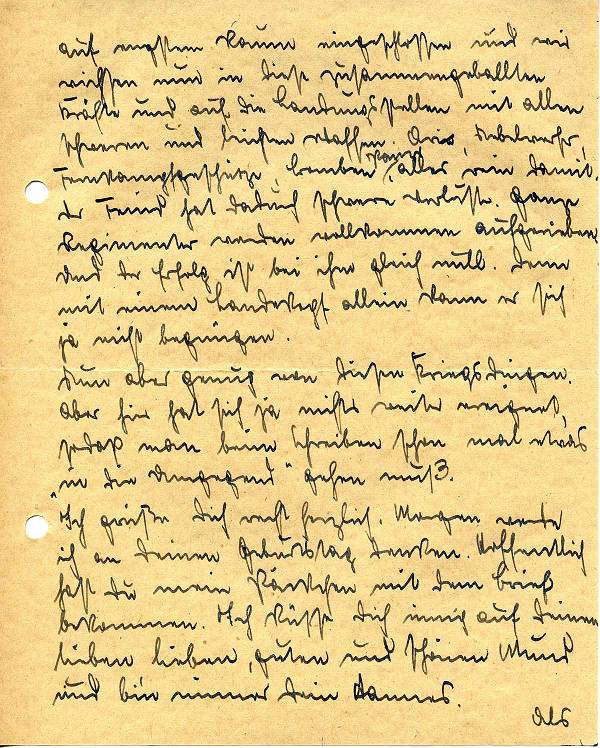 auf engstem Raum eingeschlossen und wir
wichsen nun in diese zusammengeballten
Kräfte und auf die Landungsstellen mit allen
schweren und leichten Waffen. Aris, Nebelwerfer,
Fernkampfgeschütze, Bomben, alles rein damit.
Der Feind hat dadurch schwere Verluste. Ganze
Regimenter werden vollkommen aufgerieben
und der Erfolg ist bei ihm gleich null. Denn
mit einem Landekopf allein kann er sich
ja nicht begnügen.
Nun aber genug von diesen Kriegsdingen.
Aber hier hat sich ja nichts weiter ereignet,
sodaß man beim Schreiben schon mal etwas
„in die Umgegend“ gehen muß.
Ich grüße Dich recht herzlich. Morgen werde
ich an Deinen Geburtstag denken. Hoffentlich
hast Du mein Päckchen mit dem Brief
bekommen. Ich küsse Dich innig auf Deinen
lieben lieben, guten und schönen Mund
und bin immer Dein Hannes.
Als